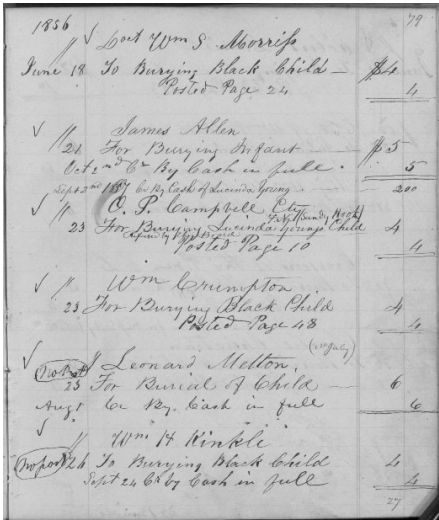 1856 79
√ Doct Wm S. Morriss
June 18 To Burying Black Child — $4
Posted Page 24 4
√ " James Allen
21 For Burying Infant — $5
Oct 2nd Cr By Cash in full . 5
Sept 2nd 1857 Cr By Cash of Lucinda Young — 200
√ " O. P. Campbell City
23 For Burying Lucinda Youngs Child 4
Posted Page 10 4
√ " Wm Crumpton
23 For Burying Black Child 4
Posted Page 48 4
√ " Leonard Melton,
23 For Burial of Child — 6
Aug 1 Cr By. Cash in full 6
√ " Wm H Kinkle
26 To Burying Black Child 4
Sept 24 Cr by Cash in full 4
27